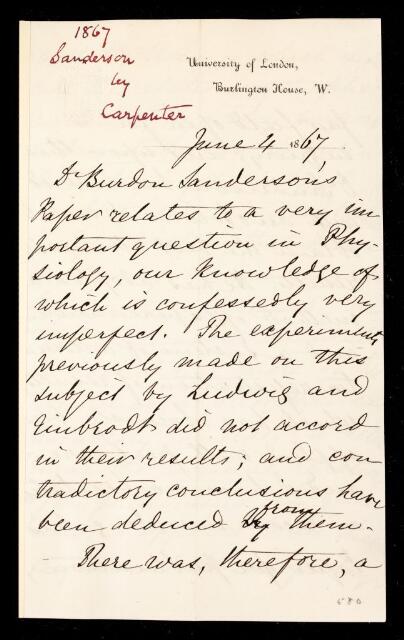 1867
Sanderson
by
Carpenter
University of London,
Burlington House, W.
June 4 1867.
Dr Burdon Sanderson's
Paper relates to a very im
portant question in Phy-
siology, our Knowledge of
which is confessedly very
imperfect. The experiments
previously made on this
subject by Ludwig and
Einbrodt did not accord
in their results; and con
tradictory conclusions have
been deduced from them.
There was, therefore, a
580